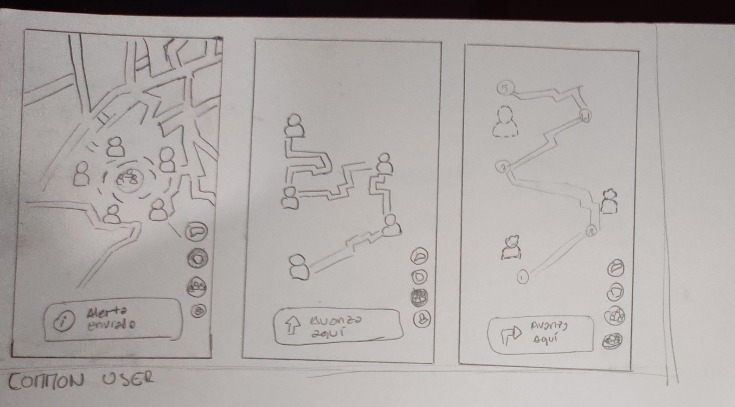 Alerta
enviada
Avanza
aquí
Avanza
Aquí
1
COMMON USER